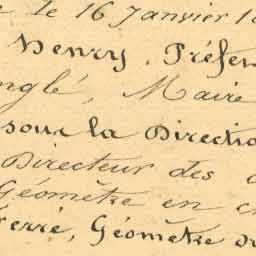 le 16 Janvier 1
Henry, Préfe
nglé, Maire
sous la Directio
Directeur des
Géomètre en c
erré, Géomètre d